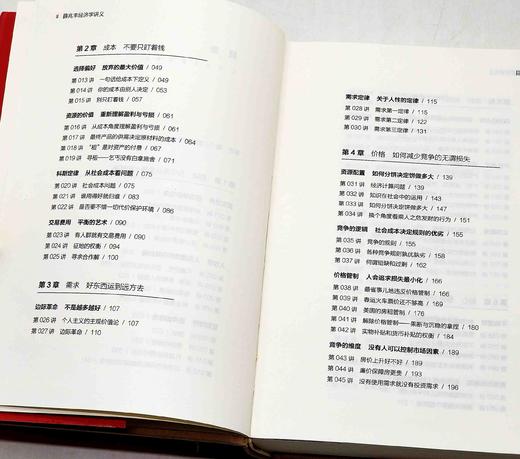 薛兆丰经济学讲义
第 2 章 成本 不要只盯着钱
选择偏好 放弃的最大价值 / 049
第 013 讲 一句话给成本下定义 / 049
第 014 讲 你的成本由别人决定 / 053
第 015 讲 别只盯着钱 / 057
资源的价值 重新理解盈利与亏损 / 061
第 016 讲 从成本角度理解盈利与亏损 / 061
第 017 讲 最终产品的供需决定原材料的成本 / 064
第 018 讲 “租”是对资产的付费 / 066
第 019 讲 寻租——乞丐没有白拿施舍 / 071
科斯定律 从社会成本看问题 / 075
第 020 讲 社会成本问题 / 075
第 021 讲 谁用得好就归谁 / 081
第 022 讲 是否要不惜一切代价保护环境 / 086
交易费用 平衡的艺术 / 090
第 023 讲 有人群就有交易费用 / 090
第 024 讲 征地的权衡 / 094
第 025 讲 寻求合作解 / 100
第 3 章 需求 好东西运到远方去
边际革命 不是越多越好 / 107
第 026 讲 个人主义的主观价值论 / 107
第 027 讲 边际革命 / 110
目
需求定律 关于人性的定律 / 115
第 028 讲 需求第一定律 / 115
第 029 讲 需求第二定律 / 122
第 030 讲 需求第三定律 / 131
第 4 章 价格 如何减少竞争的无谓损失
资源配置 如何分饼决定饼做多大 / 139
第 031 讲 经济计算问题 / 139
第 032 讲 知识在社会中的运用 / 143
第 033 讲 如何分饼决定饼做多大 / 147
第 034 讲 换个角度看商人之怨发财的行为 / 151
竞争的逻辑 社会成本决定规则的优劣 / 155
第 035 讲 竞争的规则 / 155
第 036 讲 各种竞争规则孰优孰劣 / 158
第 037 讲 何谓短缺和过剩 / 162
价格管制 人会追求损失最小化 / 165
第 038 讲 最省事儿地违反价格管制 / 165
第 039 讲 春运火车票价还不够高 / 168
第 040 讲 美国的房租管制 / 174
第 041 讲 解除价格管制——果断与沉稳的拿捏 / 180
第 042 讲 实物补贴和货币补贴的权衡 / 184
竞争的维度 没有人可以控制市场因素 / 189
第 043 讲 房价上升好不好 / 189
第 044 讲 廉价保障房更贵 / 193
第 045 讲 没有使用需求就没有投资需求 / 196